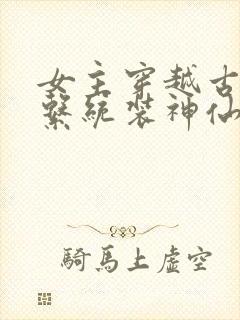 女主穿越古
繫統裝神仙
騎馬上虛空